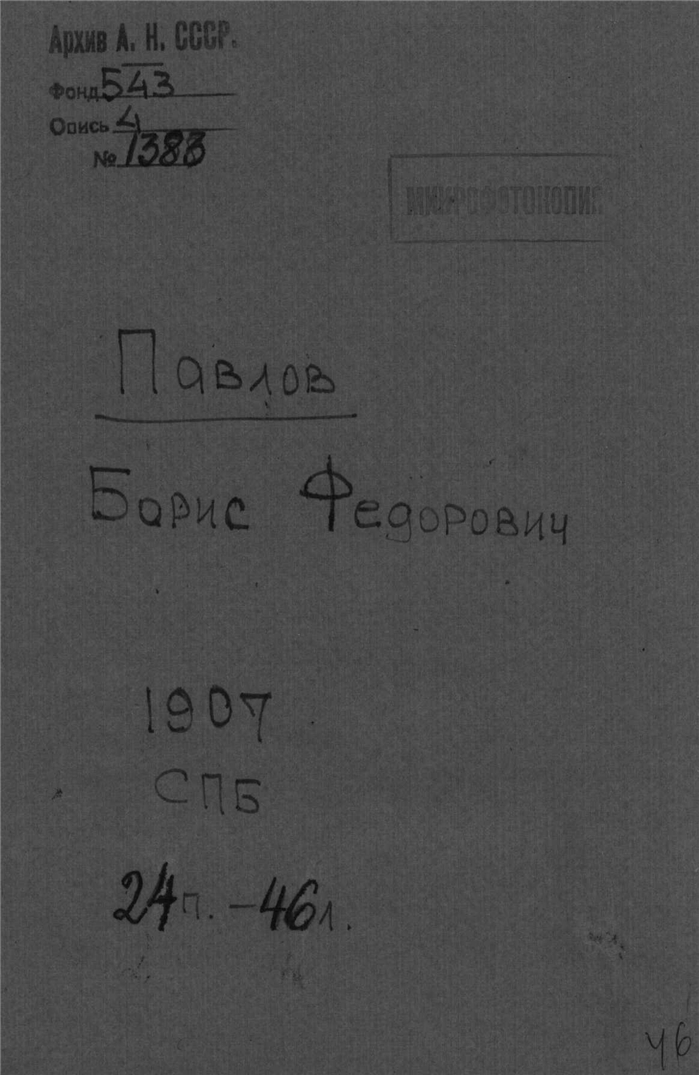 Архив А. Н. СССР.
Фонд 543
Опись 4
№ 1383
МИКРОФОТОКОПИЯ
Павлов
Борис Федорович
1907
СПБ
24п. – 46л.
46